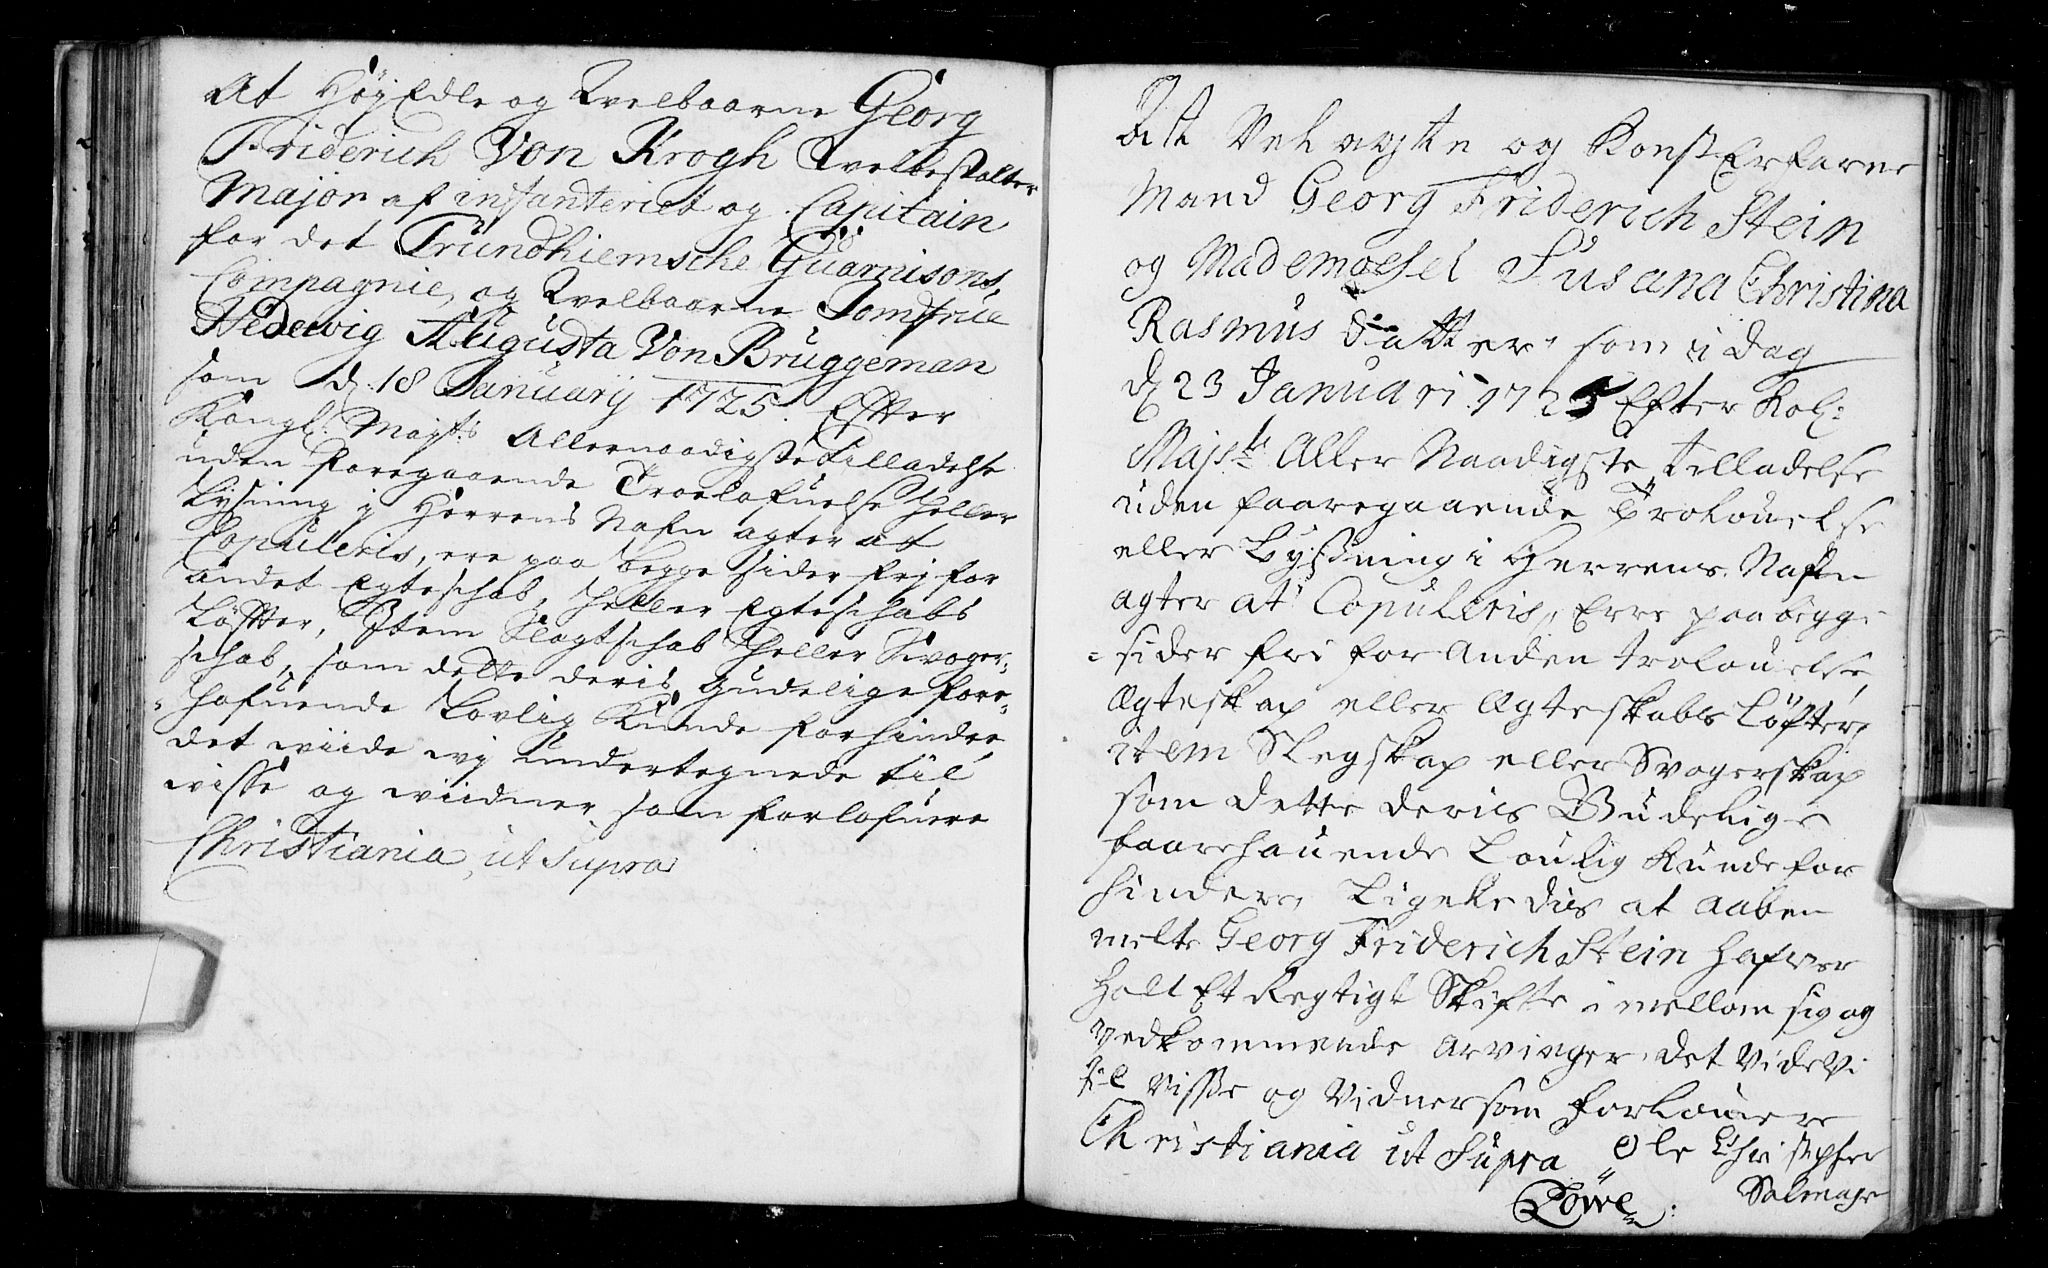 At HøyEdle og Wvelbaarne Georg
Friderich Von Krogh Wvelbestalter
Major af infanteriet og Capitain
for det Trundhiemsche Guarnisons
Compagnie, og Wvelbaarne Jomfrue
Hedewig Augusta Von Bruggeman
som d: 18 January 1725. Efter
Kongl: Mayts: Allernaadigste Tilladelse
uden foregaaende Troelofuelse heller
Lysning j Herrens Nafn agter at
Copuleris, ere paa begge sider frj for
andet Egteschab, heller Egteschabs
Løfter, Item Slagtschab heller Svoger-
schab, som dette deris gudelige fore-
hafuende Lovlig Kunde forhindre,
det wiide wj Undertegnede til
wisse og wiidner som forlofuere
Christiania, ut supra
At Velagte og KonstErfarne
Mand Georg Friderich Stein
og Mademoesel Susana Christina
Rasmus Datter som i dag
d 23 Januari 1725 Efter Kol:
Majsts Aller Naadigste tilladelse
uden faaregaaende Trolouelse
eller Lysning i Herrens Nafn
agter at Copuleris, Erre paa begge
sider fri for Anden trolouelse,
Ægteskap eller Ægteskabs Løfter,
item Slegskap eller Svogerskap
som dette deris Gudelige
faarehauende Loulig Kunde for
hindre, Ligeledis at aaben
melte Georg Friderich Stein hafver
holt Et Regtigt Skifte i mellom sig og
Vedkommende arvinger, det VideVi
til Visse og Vidner som forlouere
Christiania ut Supra Ole Christopher
Løwe: